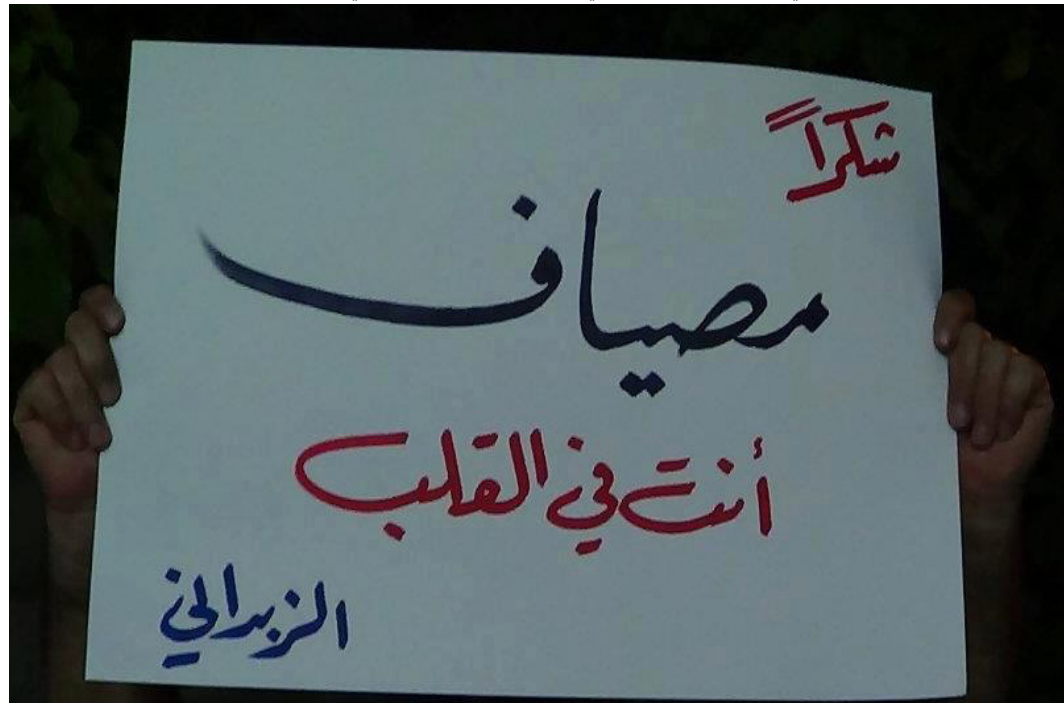 شكراً
مصياف
أنت في القلب
الزبداني